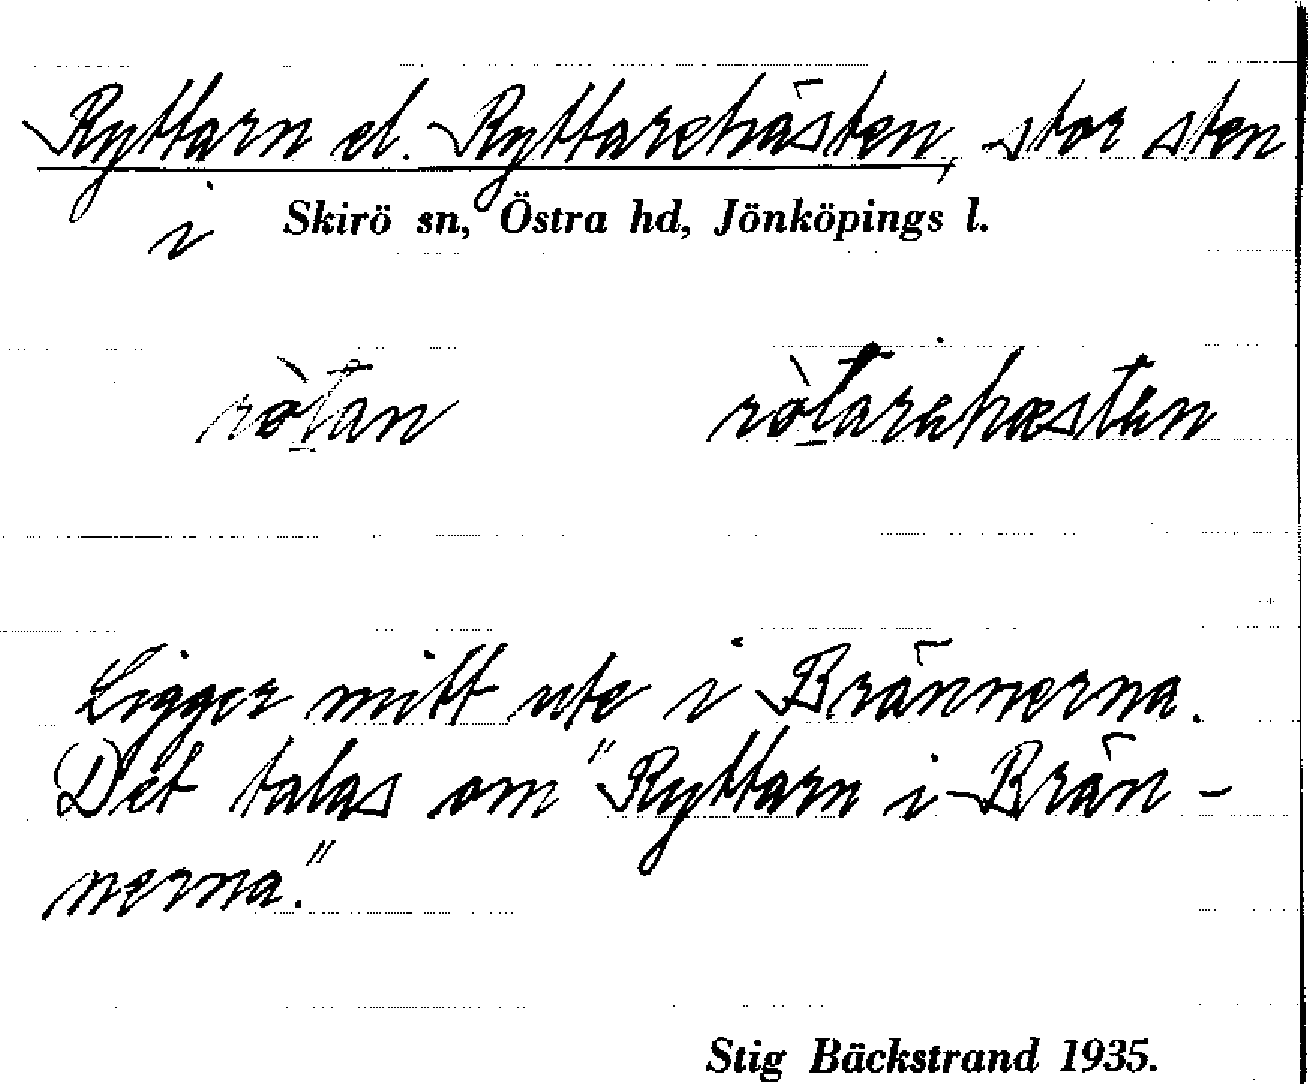 Ryttarn el. Ryttarehästen, stor sten
i Skirö sn, Östra hd, Jönköpings l.
rò̱tan rò̱tarehæsten
Ligger mitt ute i Brännerna.
Det talas om "Ryttarn i Brän-
nerna."
Stig Bäckstrand 1935.